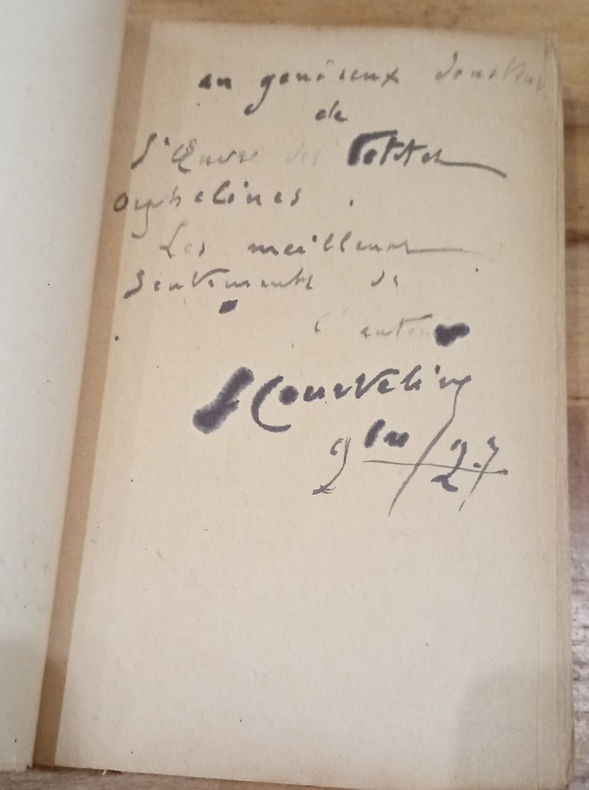 au généreux donateur
de
l'Œuvre des Petites
orphelines.
Les meilleurs
sentiments de
l'auteur
G Courteline
9bre/27